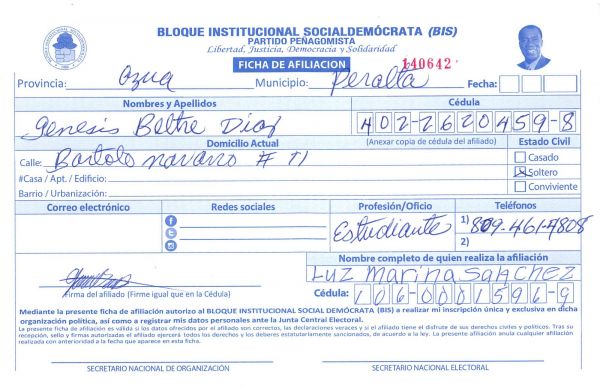 BLOQUE INSTITUCIONAL SOCIALDEMÓCRATA (BIS)
PARTIDO PEÑAGOMISTA
Libertad, Justicia, Democracia y Solidaridad
FICHA DE AFILIACION 140642
Provincia: Ozua Municipio: Peralta Fecha:
Nombres y Apellidos Cédula
Genesis Beltre Díaz 402-2620459-8
Domicilio Actual (Anexar copia de cédula del afiliado) Estado Civil
Calle: Bartolo navarro # 11 Casado
#Casa / Apt. / Edificio: X Soltero
Barrio / Urbanización: Conviviente
Correo electrónico Redes sociales Profesión/Oficio Teléfonos
Estudiante 1) 809-461-4808
2)
Nombre completo de quien realiza la afiliación
Luz Marina Sanchez
Firma del afiliado (Firme igual que en la Cédula) Cédula: 106-0001596-9
Mediante la presente ficha de afiliación autorizo al BLOQUE INSTITUCIONAL SOCIAL DEMÓCRATA (BIS) a realizar mi inscripción única y exclusiva en dicha
organización política, así como a registrar mis datos personales ante la Junta Central Electoral.
La presente ficha de afiliación es válida si los datos ofrecidos por el afiliado son correctos, las declaraciones veraces y si el afiliado tiene el disfrute de sus derechos civiles y políticos. Tras su
recepción, sello y firmas autorizadas el afiliado ejercerá todos los derechos y los deberes estatutariamente sancionados, de acuerdo a la ley. La presente afiliación anula cualquier afiliación
realizada con anterioridad a la fecha que aparece en esta ficha.
SECRETARIO NACIONAL DE ORGANIZACIÓN SECRETARIO NACIONAL ELECTORAL